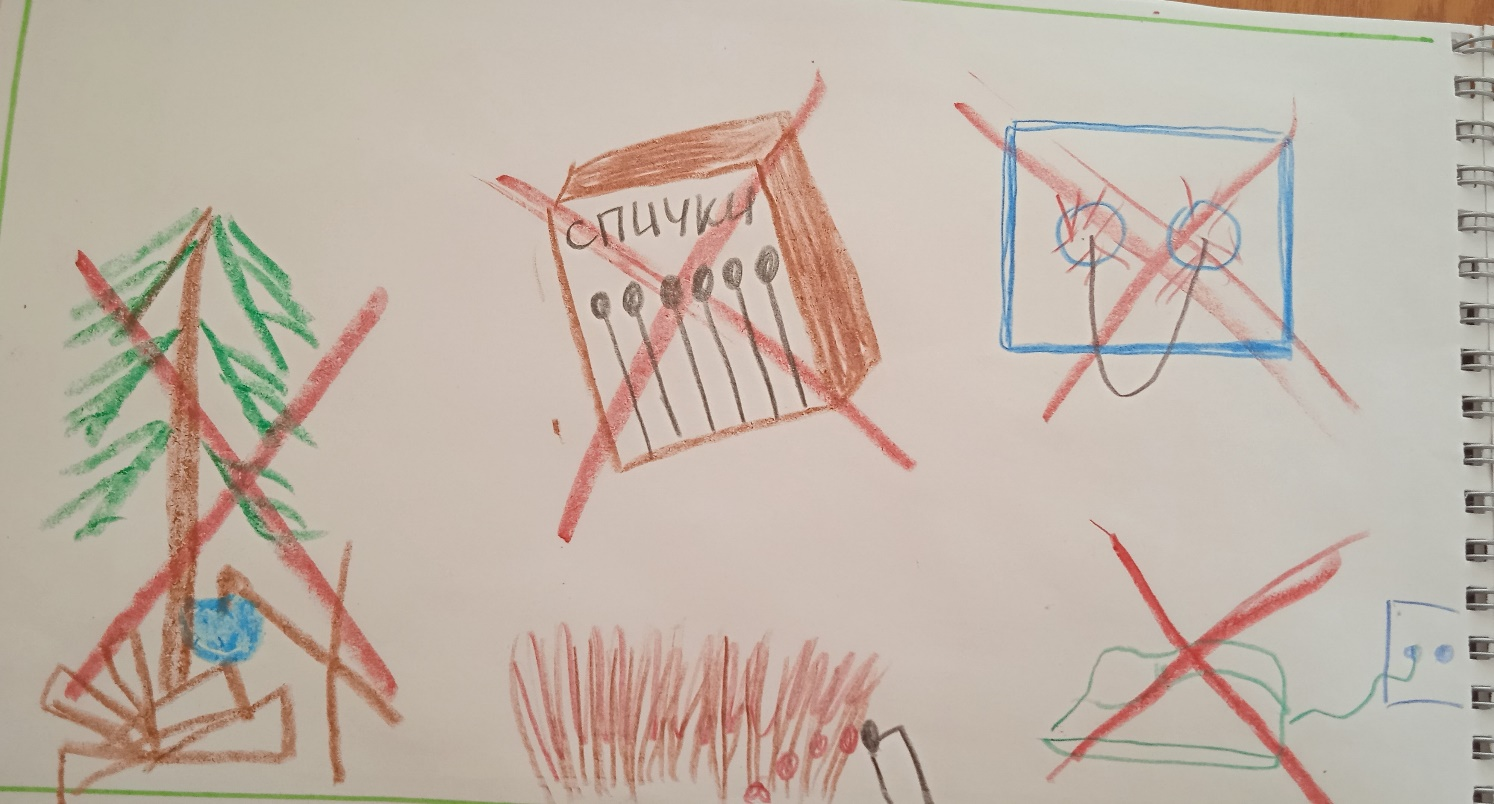 спички